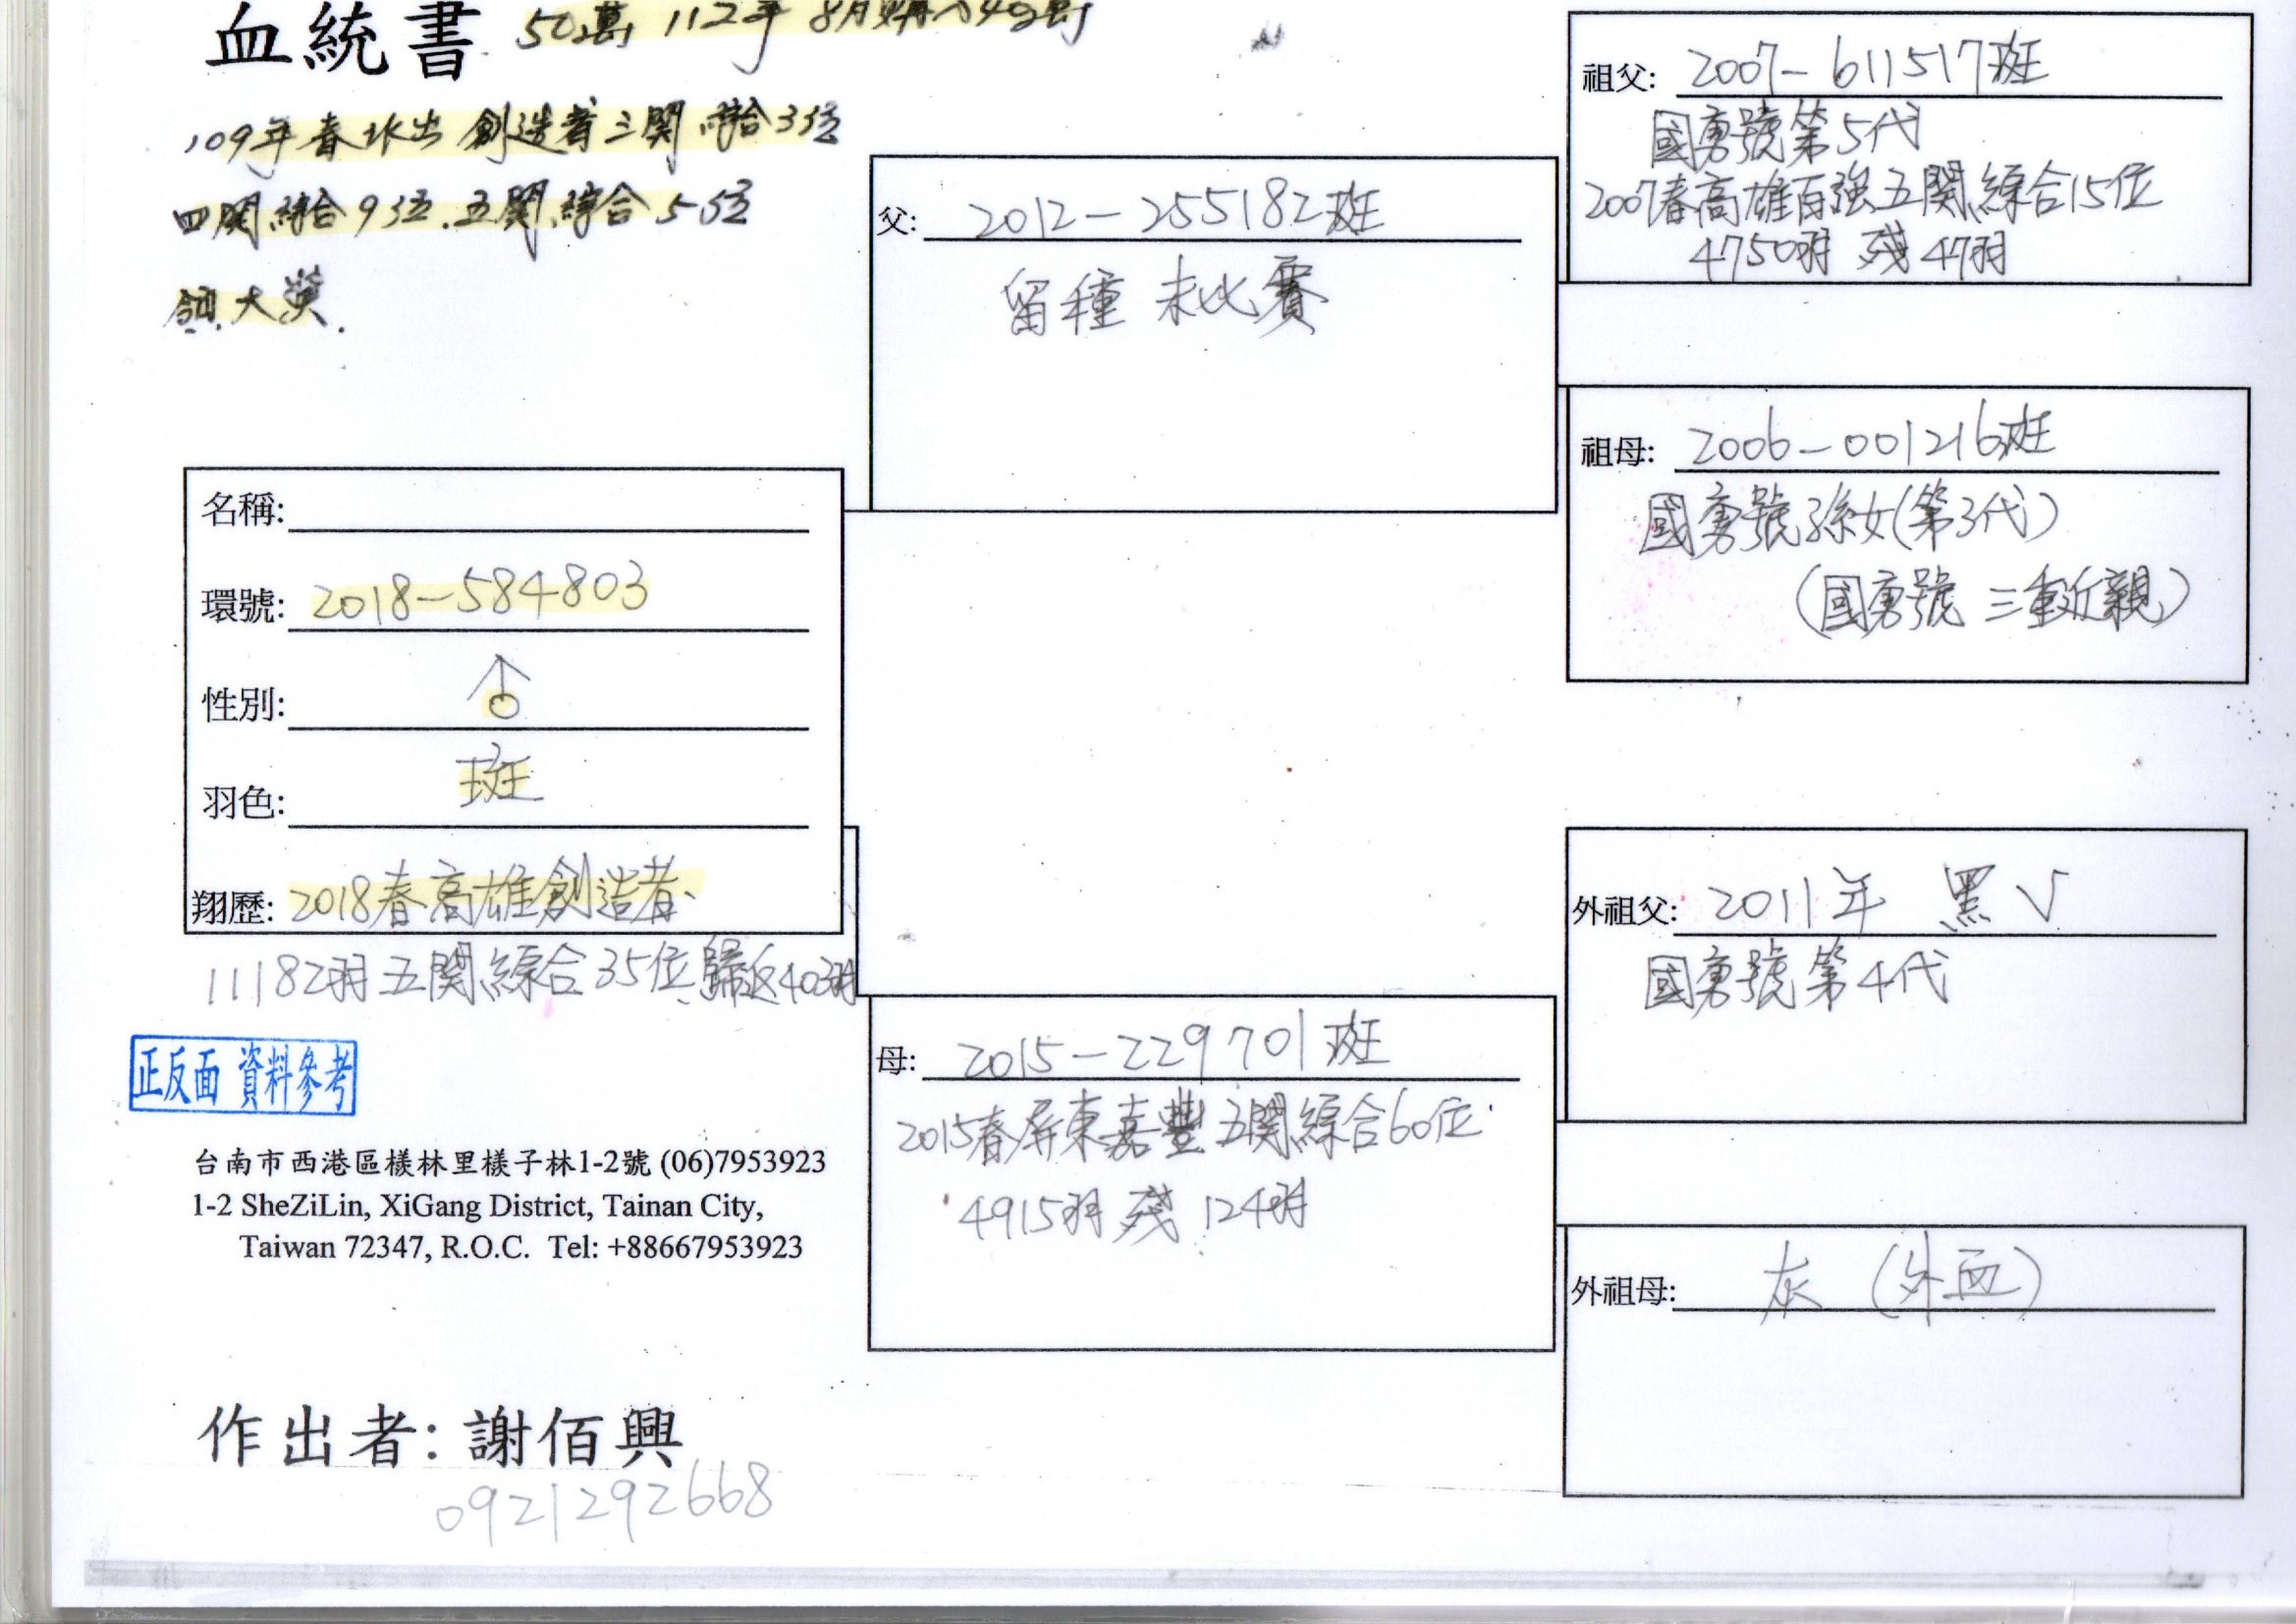 血統書 50萬 112年 8月購
109年春 作出 創造者三關 綜合33位
四關綜合93位.五關綜合55位
領大獎.
名稱:
環號: 2018-584803
性別: ♂
羽色: 斑
翔歷: 2018春高雄創造者、
11182羽五關綜合35位歸返403羽
正反面 資料參考
台南市西港區檨林里檨子林1-2號 (06)7953923
1-2 SheZiLin, XiGang District, Tainan City,
Taiwan 72347, R.O.C. Tel: +88667953923
作出者: 謝佰興
0921292668
父: 2012-255182斑
留種 未比賽
母: 2015-229701斑
2015春屏東嘉豐五關綜合60位
4915羽 殘 124羽
祖父: 2007-611517斑
國勇號第5代
2007春高雄百強五關綜合15位
4750羽 殘 47羽
祖母: 2006-001216斑
國勇號孫女(第3代)
(國勇號 三重近親)
外祖父: 2011年 黑√
國勇號第4代
外祖母: 灰 (外血)